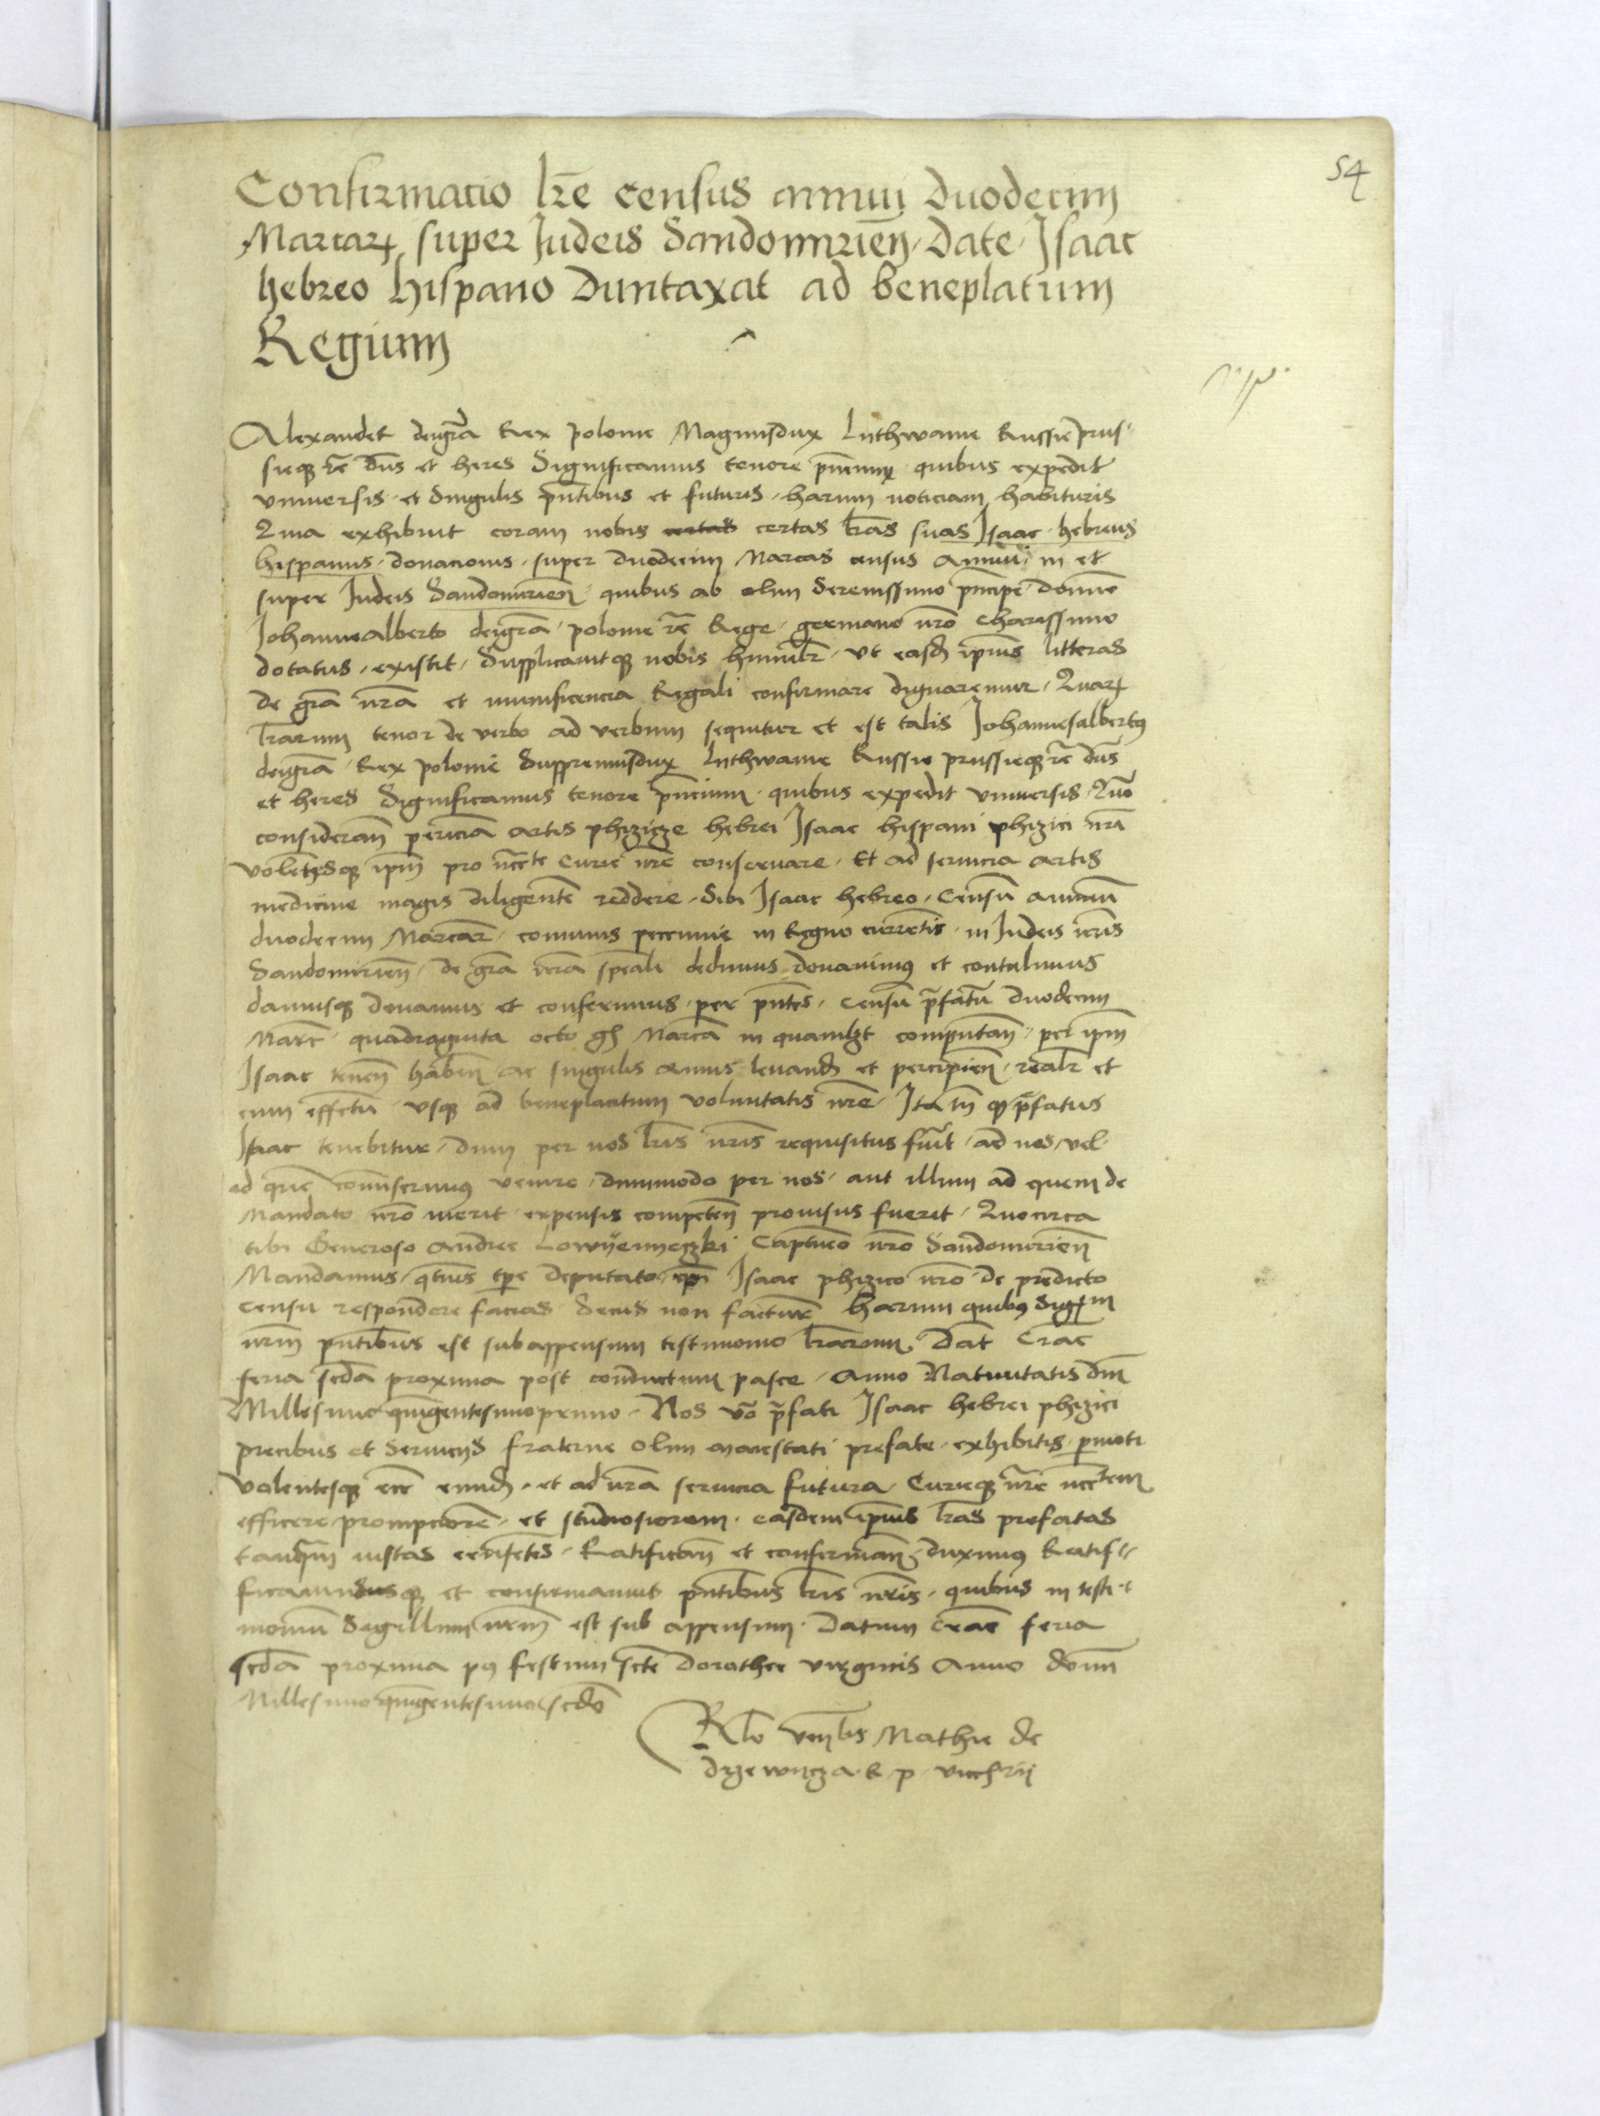 54
Confirmacio lr̄e census annui duodecim
Marcarꝝ super Iudeis Sandomirien̄ Date Isaac
hebreo hispano Duntaxat ad beneplatum
Regium
Alexander deigrā Rex polonie Magnusdux Lithwanie Russie prus-
sieqꝫ rc̄ dn̄s et heres Significamus tenore pn̄cium quibus expedit
vniuersis et singulis pn̄tibus et futuris harum noticiam habituris
Quia exhibuit coram nobis certas certas lr̄as suas Isaac hebreus
hispanus donacionis super duodecim Marcas census annui in et
super Iudeis Sandomirien̄ quibus ab olim Serenissimo pn̄cipe domino
Iohannealberto deigrā polonie rc̄ Rege germano nr̄o charissimo
dotatus existit Supplicauitqꝫ nobis humilr̄ vt easd̄ ipsius litteras
de grā nr̄a et munificencia Regali confirmare dignaremur Quarꝝ
lr̄arum tenor de verbo ad verbum sequitur et est talis Iohannesalbertꝰ
deigrā Rex polonie Suppremusdux Lithwanie Russie prussieqꝫ rc̄ dn̄s
et heres Significamus tenore pn̄cium quibus expedit vniuersis Quō
consideran̄ periciā artis phizice hebrei Isaac hispani phizici nr̄i
volētesqꝫ ipm̄ pro nc̄cte Curie nr̄e conseruare Et ad seruicia artis
medicine magis diligentē reddere Sibi Isaac hebreo Censū annuū
duodecim Marcar̄ comunis peccunie in Regno currentis in Iudeis nr̄is
Sandomirien̄ de grā nr̄a speāli dedimus donauimꝰ et contulimus
damusqꝫ donamus et conferimus per pn̄tes Censū p̄fatū duodecim
Marc̄ quadraginta octo gꝭ Marcā in quamlꝫt computan̄ per ipm̄
Isaac tenen̄ haben̄ ac singulis annis leuand̄ et percipien̄ realr̄ et
cum effectu vsqꝫ ad beneplacitum voluntatis nr̄e Ita tn̄ qꝙ p̄fatus
Isaac tenebitur dum per nos lr̄is nr̄is requisitus fuīt ad nos vel
ad quē comiserimꝰ venire dummodo per nos aut illum ad quem de
Mandato nr̄o uierit expensis competen̄ prouisus fuerit Quocirca
tibi Generoso Andree Capitaneo nr̄o Sandomirien̄
Mandamus qt̄nus tp̄e deputato Isaac phizico nr̄o de predicto
censu respondere facias Secus non facturꝰ harum quibꝰ Sigꝝm
nr̄m pn̄tibus est subappensum testimonio lr̄arum Dat̄ Crac̄
feria sedā proxima post conductum pasce Anno Natiuitatis dn̄i
Millesimo quīgentesimoprimo Nos vō p̄fati Isaac hebrei phizici
precibus et Seruicijs fraterne olim maiestati prefate exhibitis p̄moti
volentesqꝫ ec̄c eund̄ et ad nr̄a seruicia futura Curieqꝫ nr̄e nc̄ctem
efficere prompciorē et studiosiorem easdem ipsius lr̄as prefatas
tanqꝫ iustas Ratifican̄ et confirman̄ duximꝰ Ratif-
ficamusqꝫ et confirmamus pn̄tibus lr̄is nr̄is quibus in testi-
moniū Sigillum nr̄m est sub appensum Datum Crac̄ feria
sedā proxima pꝰ festum scte Dorothee virginis Anno domī
Millesimoquīgentesimosecdo
Rlo ven̄lis Mathie de
Drzewicza R p vicecꝭrij